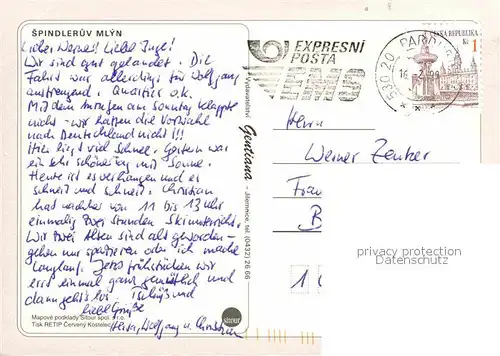 ŠPINDLERŮV MLÝN
Lieber Werner! Liebe Inge!
Wir sind gut gelandet. Die
Fahrt war allerdings für Wolfgang
anstrengend. Quartier o.k.
Mit dem Anrufen am Sonntag klappte
nicht - wir hatten die Vorwahl
nach Deutschland nicht!!!
Hier liegt viel Schnee. Gestern war
ein sehr schöner Tag mit Sonne.
Heute ist es verhangen und es
schneit und schneit. Christian
hat nachher von 11 bis 13 Uhr
einmalig zwei Stunden Skiunterricht.
Wir zwei Alten sind alt geworden -
gehen nur spazieren oder ich mache
Langlauf. Jetzt frühstücken wir
erst einmal ganz gemütlich und
dann geht's los. Tschüß und
liebe Grüße
Wolfgang u. Christian
Mapové podklady Sitour spol. s r.o.
Tisk RETIP Červený Kostelec
sitour
Vydavatelství Gentiana - Jilemnice, tel. (0432) 26 66
EXPRESNÍ
POSTA
EMS
530 20 PARDUBICE
ČESKÁ REPUBLIKA
Kč
Herrn
Werner Zenker
Frau
B
1
privacy protection
Datenschutz